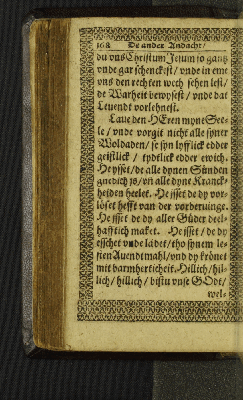 168 De ander Andacht/
du vns Christum Jesum so gantz
vnde gar schenckest/ vnde in eme
vns den rechten wech sehen lest/
de Warheit bewysest/ vnde dat
Leuendt vorlehnest.
Laue den HEren myne See-
le/ vnde vorgit nicht alle syner
Woldaden/ se syn lyfflick edder
geistlick/ tydtlick edder ewich.
He ysset/ de alle dynen Sünden
gnedich is/ vñ alle dyne Kranck-
heiden heelet. He isset de dy vor-
löset hefft van der vorderuinge.
He isset de dy aller Güder deel-
hafftich maket. He isset/ de dy
esschet vnde ladet/ tho synem le-
sten Auendtmahl/ vnd dy krönet
mit barmherticheit. Hillich/ hil-
lich/ hillich/ bistu vnse GOdt/
wel-